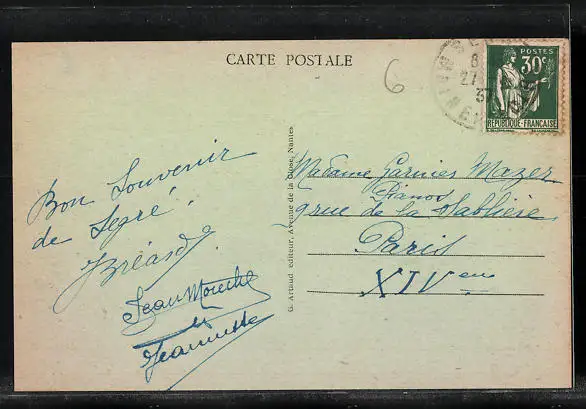 CARTE POSTALE
6
POSTES
30c
27
37
REPUBLIQUE-FRANÇAISE
Bon Souvenir
de Segré !
G. Artaud editeur, Avenue de la Close, Nantes
Madame Garnier Mazer
Pianos
9 rue de la Sablière
Paris
XIVème
Jean
et
Jeannette